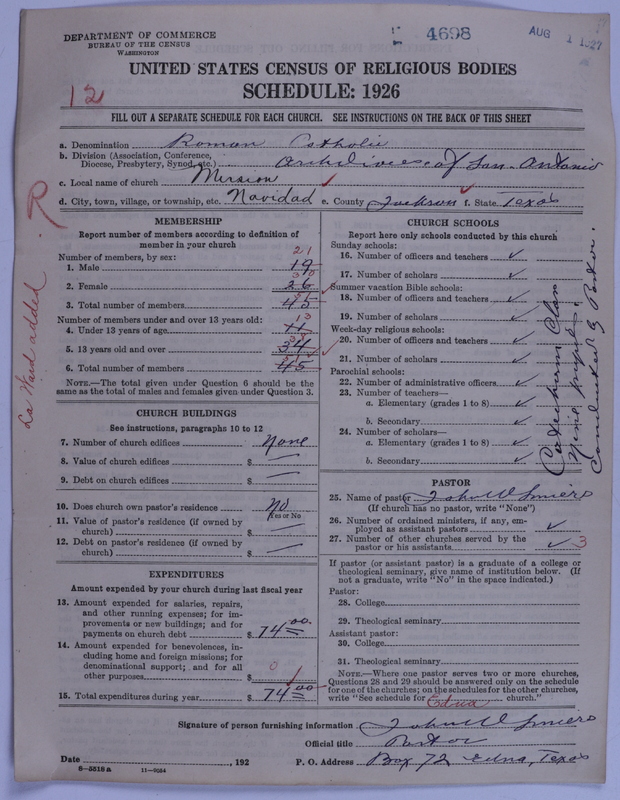 DEPARTMENT OF COMMERCE
BUREAU OF THE CENSUS
WASHINGTON
4698
AUG 1 1927
UNITED STATES CENSUS OF RELIGIOUS BODIES
SCHEDULE: 1926
12
FILL OUT A SEPARATE SCHEDULE FOR EACH CHURCH. SEE INSTRUCTIONS ON THE BACK OF THIS SHEET
a. Denomination Roman Catholic
b. Division (Association, Conference, Diocese, Presbytery, Synod, etc.) Archdiocese of San Antonio
c. Local name of church Mission
d. City, town, village, or township, etc. Navidad e. County Jackson f. State Texas
R
La Ward added
MEMBERSHIP
Report number of members according to definition of member in your church
Number of members, by sex:
21
1. Male 19
30
2. Female 26
3. Total number of members 45
Number of members under and over 13 years old:
13
4. Under 13 years of age 11
5. 13 years old and over 34
6. Total number of members 45
NOTE.—The total given under Question 6 should be the same as the total of males and females given under Question 3.
CHURCH BUILDINGS
See instructions, paragraphs 10 to 12
7. Number of church edifices None
8. Value of church edifices $ —
9. Debt on church edifices $ —
10. Does church own pastor's residence No
Yes or No
11. Value of pastor's residence (if owned by church) $ —
12. Debt on pastor's residence (if owned by church) $ —
EXPENDITURES
Amount expended by your church during last fiscal year
13. Amount expended for salaries, repairs, and other running expenses; for improvements or new buildings; and for payments on church debt $ 74.00
14. Amount expended for benevolences, including home and foreign missions; for denominational support; and for all other purposes $ 0
15. Total expenditures during year $ 74.00
CHURCH SCHOOLS
Report here only schools conducted by this church
Sunday schools:
16. Number of officers and teachers ✓
17. Number of scholars ✓
Summer vacation Bible schools:
18. Number of officers and teachers ✓
19. Number of scholars ✓
Week-day religious schools:
20. Number of officers and teachers ✓
21. Number of scholars ✓
Parochial schools:
22. Number of administrative officers ✓
23. Number of teachers—
a. Elementary (grades 1 to 8) ✓
b. Secondary ✓
24. Number of scholars—
a. Elementary (grades 1 to 8) ✓
b. Secondary ✓
Catechism Class
Nine pupils.
Conducted by Pastor.
PASTOR
25. Name of pastor John W
(If church has no pastor, write "None")
26. Number of ordained ministers, if any, employed as assistant pastors ✓
27. Number of other churches served by the pastor or his assistants ✓ 3
If pastor (or assistant pastor) is a graduate of a college or theological seminary, give name of institution below. (If not a graduate, write "No" in the space indicated.)
Pastor:
28. College
29. Theological seminary
Assistant pastor:
30. College
31. Theological seminary
NOTE.—Where one pastor serves two or more churches, Questions 28 and 29 should be answered only on the schedule for one of the churches; on the schedules for the other churches, write "See schedule for Edna church."
Signature of person furnishing information John W
Official title Pastor
Date , 192
P. O. Address Box 72 Edna, Texas
8-5518a 11-9054